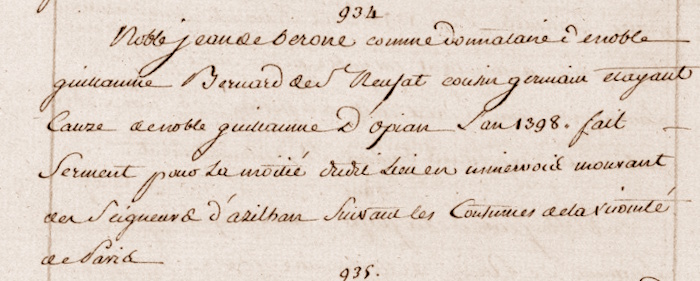 934
Noble jean de berone comme donnataire de noble
guillaume Bernard de St Neusat cousin germain et ayant
Cauze de noble guillaume D'opian L'an 1398. fait
Serment pour La moitié dudit Lieu en minervois mouvant
des Seigneurs d'azilhan Suivant les Coutumes de la vicomté
de Paris
935.